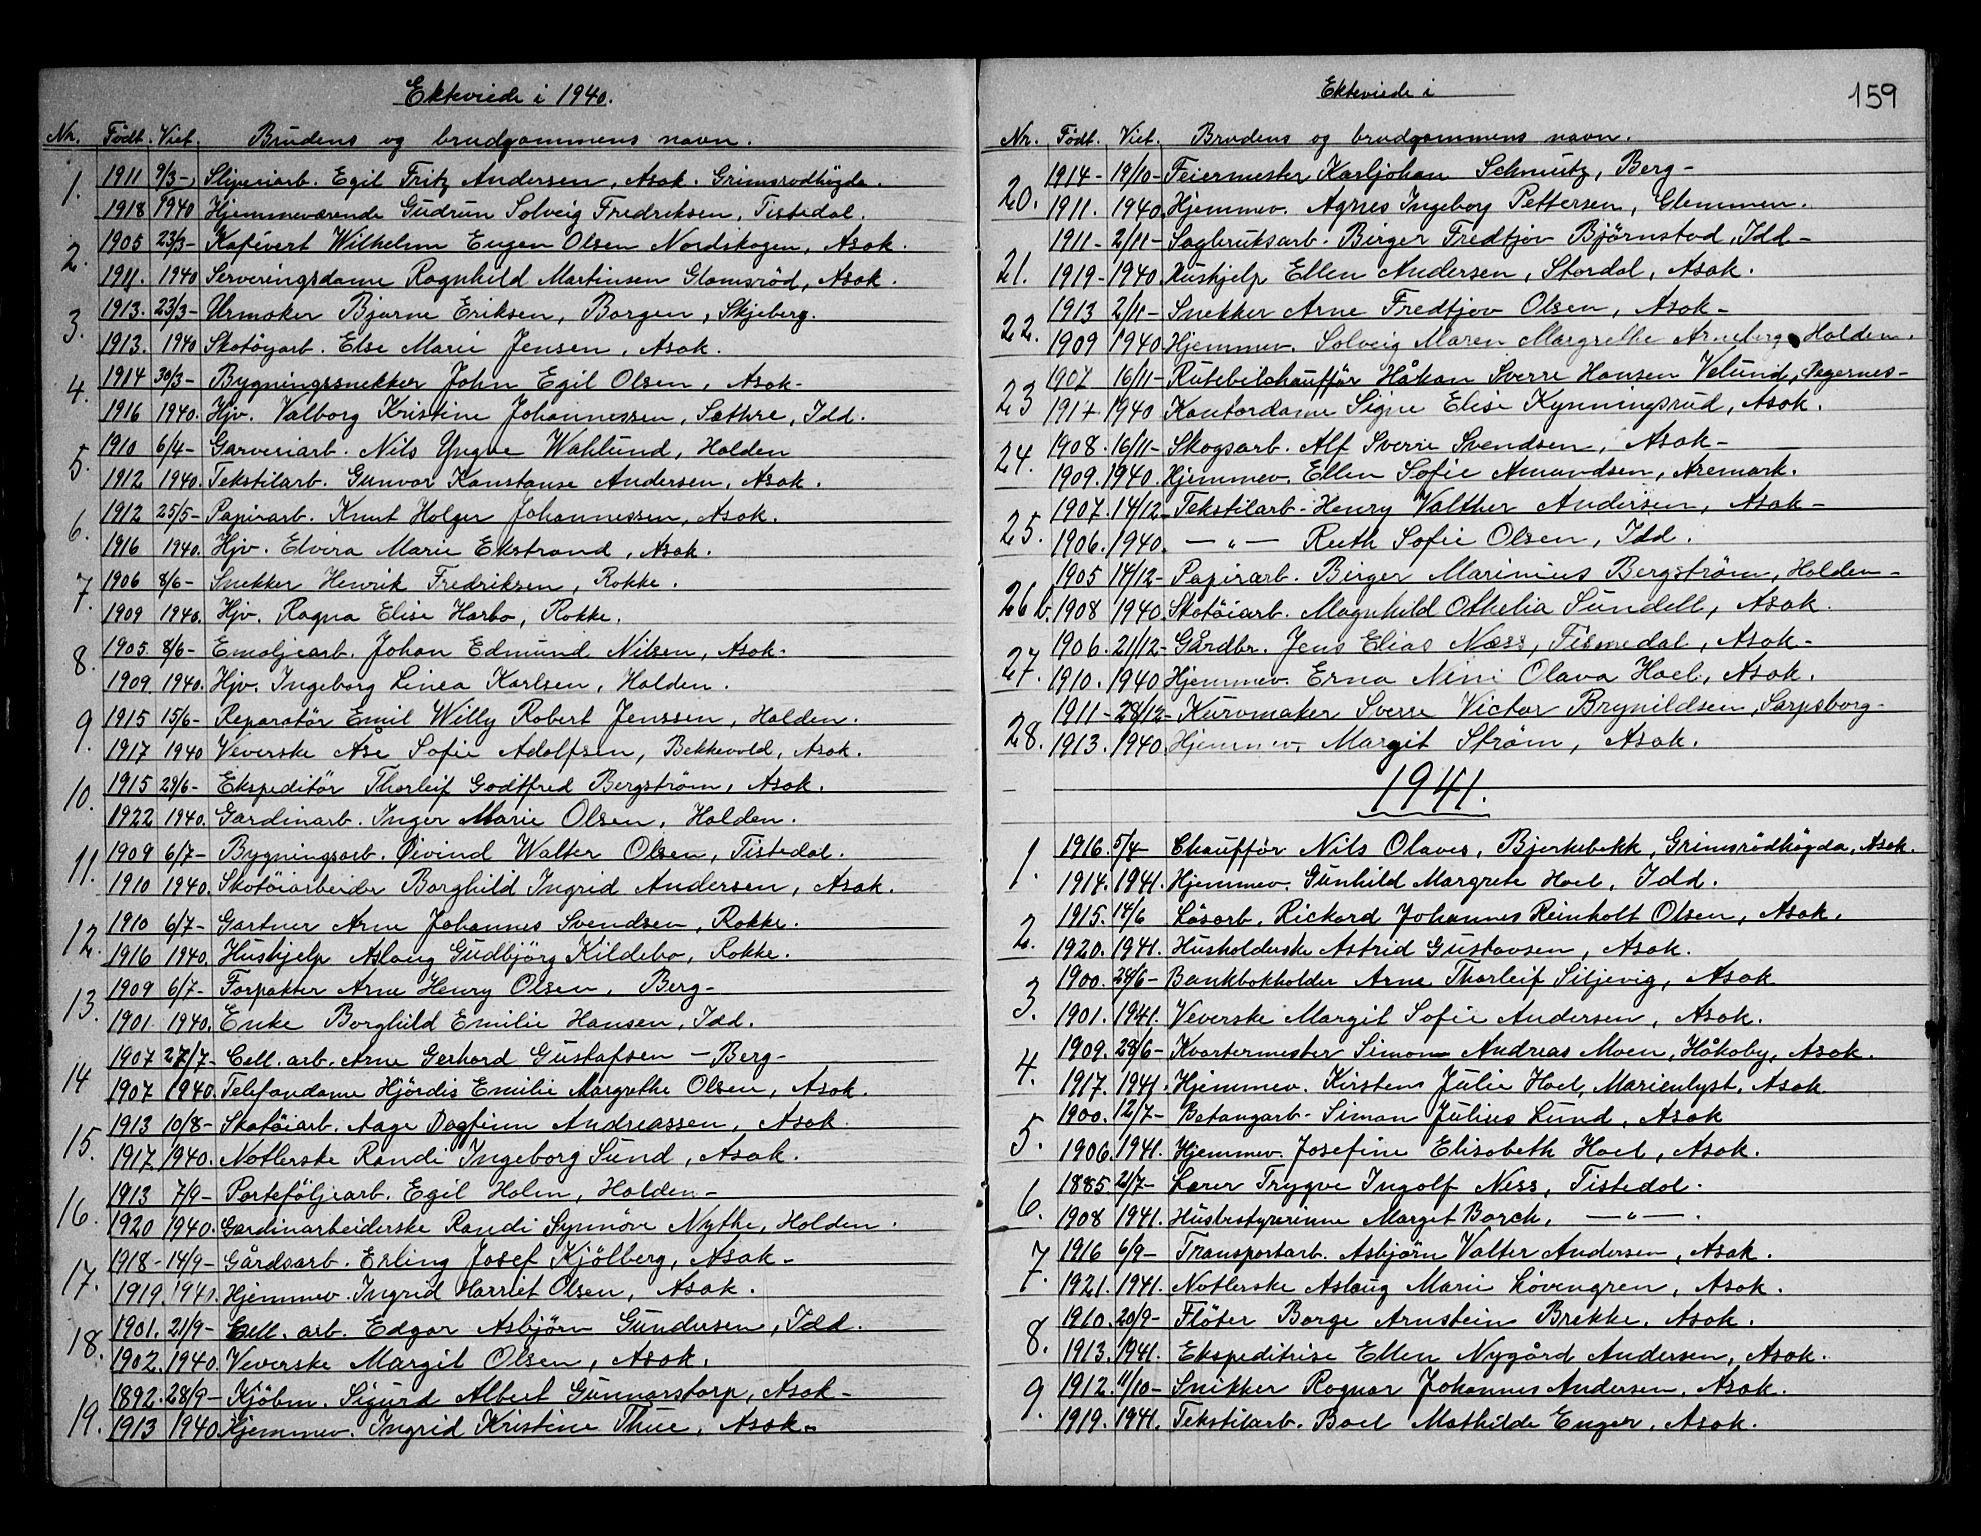 Ekteviede i 1940.
Nr. Født. Viet. Brudens og brudgommens navn.
1. 1911 9/3-, Sliperiarb. Egil Fritz Andersen, Asak. Grimsrødhøgda.
1918 1940 Hjemmeværende Gudrun Solveig Fredriksen, Tistedal.
2. 1905 23/3- Kafévert Wilhelm Eugen Olsen Nordskogen, Asak.
1911. 1940 Serveringsdame Ragnhild Martinsen Glomsrød, Asak.
3. 1913. 23/3- Urmaker Bjarne Eriksen, Borgen, Skjeberg.
1913. 1940 Skotøyarb. Else Marie Jensen, Asak.
4. 1914 30/3- Bygningssnekker John Egil Olsen, Asak-
1916 1940. Hjv. Valborg Kristine Johannessen, Sæthre, Idd.
5. 1910 6/4- Garveriarb. Nils Yngve Wahlund, Halden
1912 1940. Tekstilarb. Gunvor Konstanse Andersen, Asak.
6. 1912 25/5- Papirarb. Knut Holger Johannessen, Asak.
1916 1940. Hjv. Elvira Marie Ekstrand, Asak.
7. 1906 8/6- Snekker Henrik Fredriksen, Rokke.
1909 1940. Hjv. Ragna Elise Harbo, Rokke.
8. 1905. 8/6- Emaljearb. Johan Edmund Nilsen, Asak-
1909. 1940. Hjv. Ingeborg Linea Karlsen, Halden.
9. 1915 15/6- Reparatør Emil Willy Robert Jenssen, Halden.
1917 1940 Veverske Åse Sofie Adolfsen, Bekkevold, Asak.
10. 1915 29/6- Ekspeditør Thorleif Godtfred Bergstrøm, Asak.
1922 1940. Gardinarb. Inger Marie Olsen, Halden.
11. 1909 6/7- Bygningsarb. Øivind Walter Olsen, Tistedal.
1910 1940. Skotøiarbeider Borghild Ingrid Andersen, Asak.
12. 1910 6/7- Gartner Arne Johannes Svendsen, Rokke.
1916 1940. Hushjelp Aslaug Gudbjörg Kildebo, Rokke.
13. 1909 6/7- Forpakter Arne Henry Olsen, Berg-
1901 1940. Enke Borghild Emilie Hansen, Idd.
14 1907 27/7- Cell. arb. Arne Gerhard Gustafsen - Berg-
1907 1940. Telefondame Hjørdis Emilie Margrethe Olsen, Asak.
15. 1913 10/8- Skotøiarb. Aage Dagfinn Andreassen, Asak.
1917. 1940. Notlerske Randi Ingeborg Sund, Asak.
16. 1913 7/9- Porteføljearb. Egil Holm, Halden-
1920 1940. Gardinarbeiderske Randi Synnöve Nythe, Halden.
17. 1918- 14/9- Gårdsarb. Erling Josef Kjölberg, Asak-
1919. 1940. Hjemmev. Ingrid Harriet Olsen, Asak.
18. 1901. 21/9- Cell. arb. Edgar Asbjörn Gundersen, Idd.
1902. 1940. Veverske Margit Olsen, Asak.
19. 1892. 28/9- Kjöbm. Sigurd Albert Gunnarstorp, Asak-
1913 1940 Hjemmev. Ingrid Kristine Thue, Asak-
Ekteviede i
159
Nr. Født. Viet. Brudens og brudgommens navn.
20. 1914- 19/10- Feiermester Karljohan Schmutz, Berg-
1911. 1940. Hjemmev. Agnes Ingeborg Pettersen, Glemmen.
21. 1911- 2/11- Sagbruksarb. Birger Fredtjov Bjørnstad, Idd-
1919- 1940 Hushjelp Ellen Andersen, Stordal, Asak.
22. 1913 2/11- Snekker Arne Fredtjov Olsen, Asak-
1909 1940 Hjemmev. Solveig Maren Margrethe Arneberg Halden.
23 1907 16/11- Rutebilchauffør Håkan Sverre Hansen Velund,
1917 1940 Kontordame Signe Elise Kynningsrud, Asak.
24. 1908. 16/11- Skogsarb. Alf Sverre Svendsen, Asak-
1909. 1940. Hjemmev. Ellen Sofie Amundsen, Aremark.
25. 1907. 14/12- Tekstilarb. Henry Valther Andersen, Asak-
1906. 1940. -"- Ruth Sofie Olsen, Idd.
26 b. 1905 14/12- Papirarb. Birger Marinius Bergstrøm, Halden-
1908 1940. Skotøiarb. Magnhild Othelia Sundell, Asak.
27. 1906. 21/12- Gårdbr. Jens Elias Næss, Asak-
1910. 1940 Hjemmev. Erna Nini Olava Hoel, Asak.
28. 1911- 28/12- Kurvmaker Sverre Victor Brynildsen, Sarpsborg-
1913. 1940. Hjemmev. Margit Strøm, Asak.
1941.
1. 1916. 5/4- Chauffør Nils Olaves, Bjerkebekk, Grimsrødhøgda, Asak.
1914. 1941. Hjemmev. Gunhild Margrete Hoel, Idd.
2. 1915. 14/6 Løsarb. Rickard Johannes Reinholt Olsen, Asak.
1920. 1941. Husholderske Astrid Gustavsen, Asak.
3. 1900. 28/6- Bankbokholder Arne Thorleif Siljevig, Asak
1901. 1941. Veverske Margit Sofie Andersen, Asak.
4. 1909. 28/6- Kvartermester Simon Andreas Moen, Håkoby, Asak.
1917. 1941. Hjemmev. Kirsten Julie Hoel, Marienlyst, Asak
5. 1900. 12/7- Betongarb- Simon Julius Lund, Asak
1906. 1941. Hjemmev. Josefine Elisabeth Hoel, Asak.
6. 1885. 21/7- Lærer Trygve Ingolf Ness, Tistedal.
1908 1941. Husbestyrerinne Margit Borch, -"-.
7. 1916 6/9- Transportarb. Asbjørn Valter Andersen, Asak.
1921. 1941. Notlerske Aslaug Marie Lövengren, Asak.
8. 1910. 20/9- Fløter Borge Arnstein Brekke, Asak.
1913. 1941. Ekspeditrise Ellen Nygård Andersen, Asak.
9. 1912. 11/10- Snikker Ragnar Johannes Andersen, Asak.
1919. 1941. Tekstilarb. Boel Mathilde Enger, Asak.